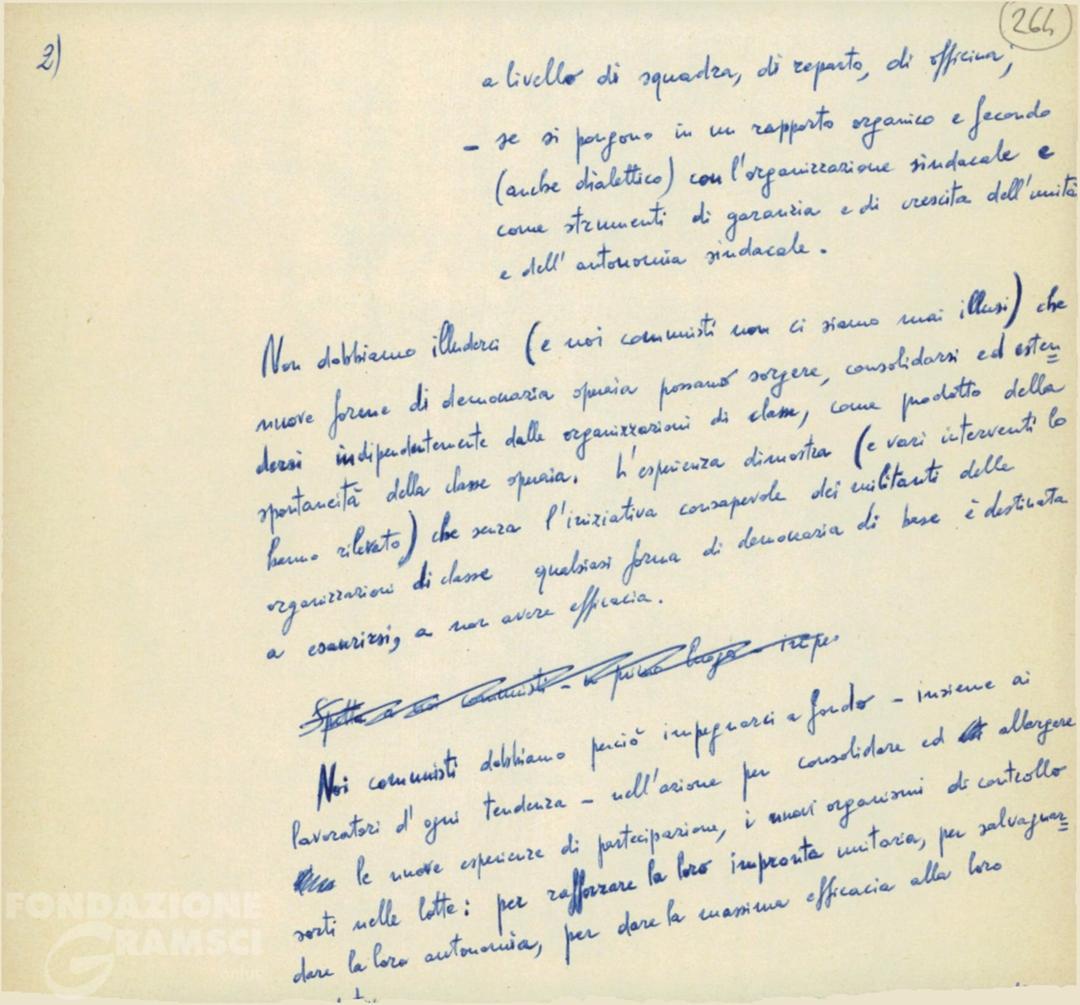 264
2)
a livello di squadra, di reparto, di officina;
- se si pongono in un rapporto organico e fecondo
(anche dialettico) con l'organizzazione sindacale e
come strumenti di garanzia e di crescita dell'unità
e dell'autonomia sindacale.
Non dobbiamo illuderci (e noi comunisti non ci siamo mai illusi) che
nuove forme di democrazia operaia possano sorgere, consolidarsi ed esten=
dersi indipendentemente dalle organizzazioni di classe, come prodotto della
spontaneità della classe operaia. L'esperienza dimostra (e vari interventi lo
hanno rilevato) che senza l'iniziativa consapevole dei militanti delle
organizzazioni di classe qualsiasi forma di democrazia di base è destinata
a esaurirsi, a non avere efficacia.
Spetta a noi comunisti - in primo luogo - impe
Noi comunisti dobbiamo perciò impegnarci a fondo - insieme ai
lavoratori d'ogni tendenza - nell'azione per consolidare ed allargare
le nuove esperienze di partecipazione, i nuovi organismi di controllo
sorti nelle lotte: per rafforzare la loro impronta unitaria, per salvaguar=
dare la loro autonomia, per dare la massima efficacia alla loro
FONDAZIONE
GRAMSCI
onlus